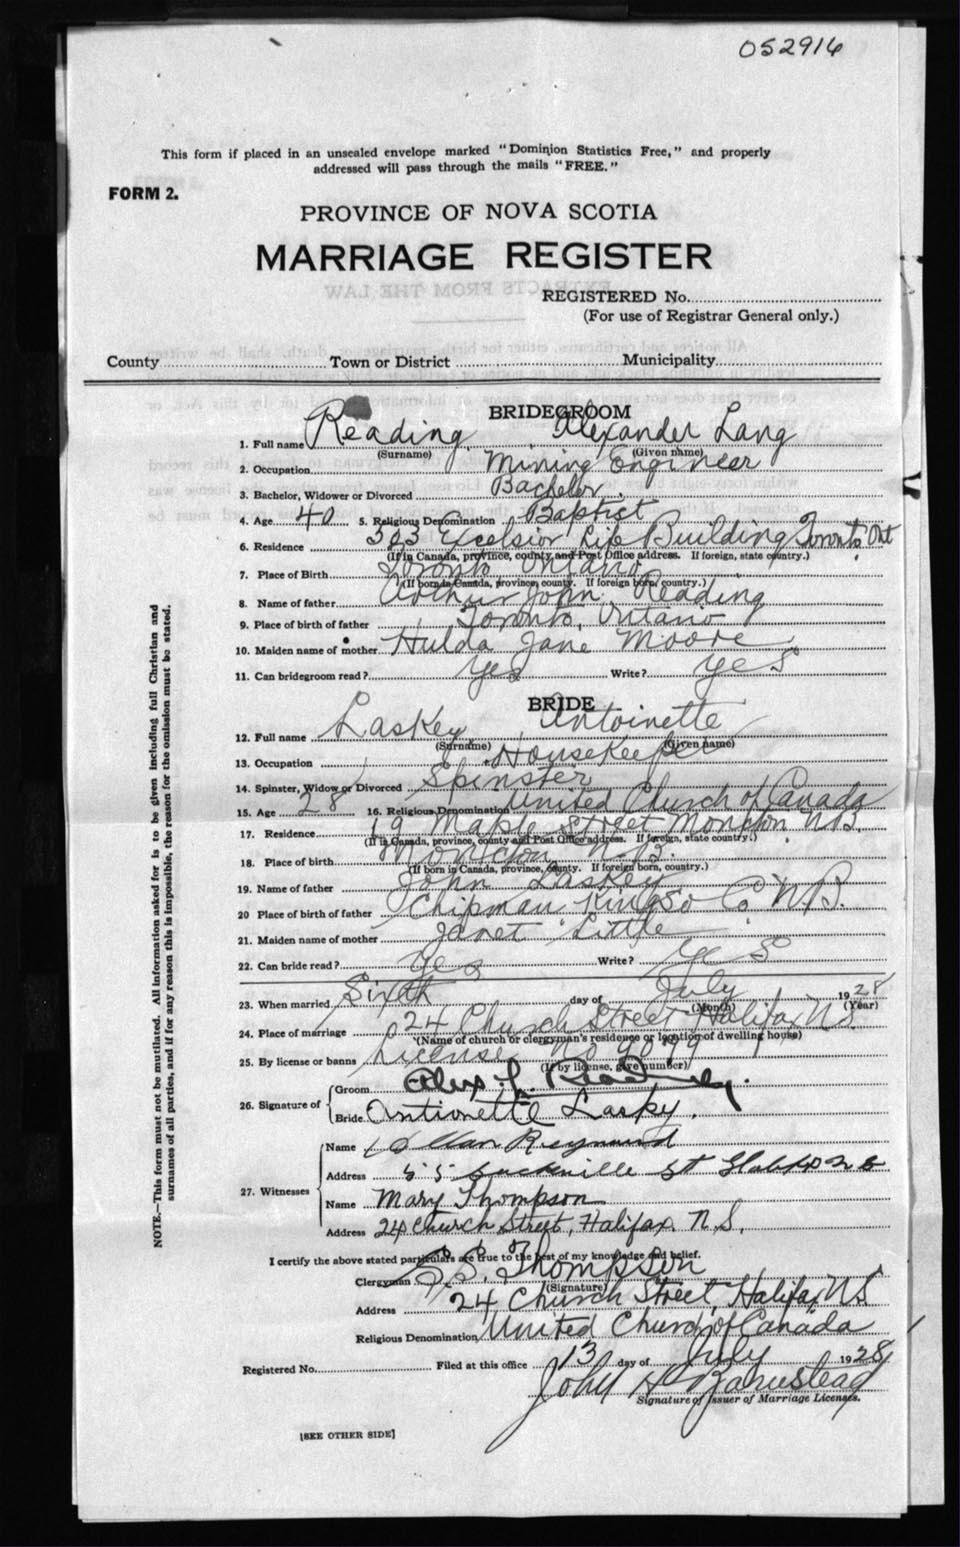 052916
This form if placed in an unsealed envelope marked "Dominion Statistics Free," and properly
addressed will pass through the mails "FREE."
FORM 2.
PROVINCE OF NOVA SCOTIA
MARRIAGE REGISTER
EXTRACTS FROM THE LAW
REGISTERED No.
(For use of Registrar General only.)
County Town or District Municipality
BRIDEGROOM
1. Full name Reading Alexander Lang
(Surname) (Given name)
2. Occupation Mining Engineer
3. Bachelor, Widower or Divorced Bachelor
4. Age 40 5. Religious Denomination Baptist
6. Residence 303 Excelsior Life Building Toronto Ont
(If in Canada, province, county, and Post Office address. If foreign, state country.)
7. Place of Birth Toronto Ontario
(If born in Canada, province, county. If foreign born, country.)
8. Name of father Arthur John Reading
9. Place of birth of father Toronto, Ontario
10. Maiden name of mother Hulda Jane Moore
11. Can bridegroom read? yes Write? yes
BRIDE
12. Full name Laskey Antoinette
(Surname) (Given name)
13. Occupation Housekeeper
14. Spinster, Widow or Divorced Spinster
15. Age 28 16. Religious Denomination United Church of Canada
17. Residence 19 Maple Street Moncton N.B.
(If in Canada, province, county and Post Office address. If foreign, state country.)
18. Place of birth Moncton N.B.
(If born in Canada, province, county. If foreign born, country.)
19. Name of father John Laskey
20 Place of birth of father Chipman Kings Co N.B.
21. Maiden name of mother Janet Little
22. Can bride read? yes Write? yes
23. When married Sixth day of July 1928
(Month) (Year)
24. Place of marriage 24 Church Street Halifax N.S.
(Name of church or clergyman's residence or location of dwelling house)
25. By license or banns License No
(If by license, give number)
26. Signature of Groom Alex L. Reading.
Bride Antionette Lasky.
27. Witnesses Name Allan
Address 55 Sackville St Halifax N S
Name Mary Thompson
Address 24 Church Street, Halifax, N.S.
I certify the above stated particulars are true to the best of my knowledge and belief.
Clergyman Thompson
(Signature)
Address 24 Church Street, Halifax N.S.
Religious Denomination United Church of Canada
Registered No. Filed at this office 13 day of July 1928
John H Barnstead
Signature of Issuer of Marriage Licenses.
[SEE OTHER SIDE]
NOTE.—This form must not be mutilated. All information asked for is to be given including full Christian and
surnames of all parties, and if for any reason this is impossible, the reason for the omission must be stated.